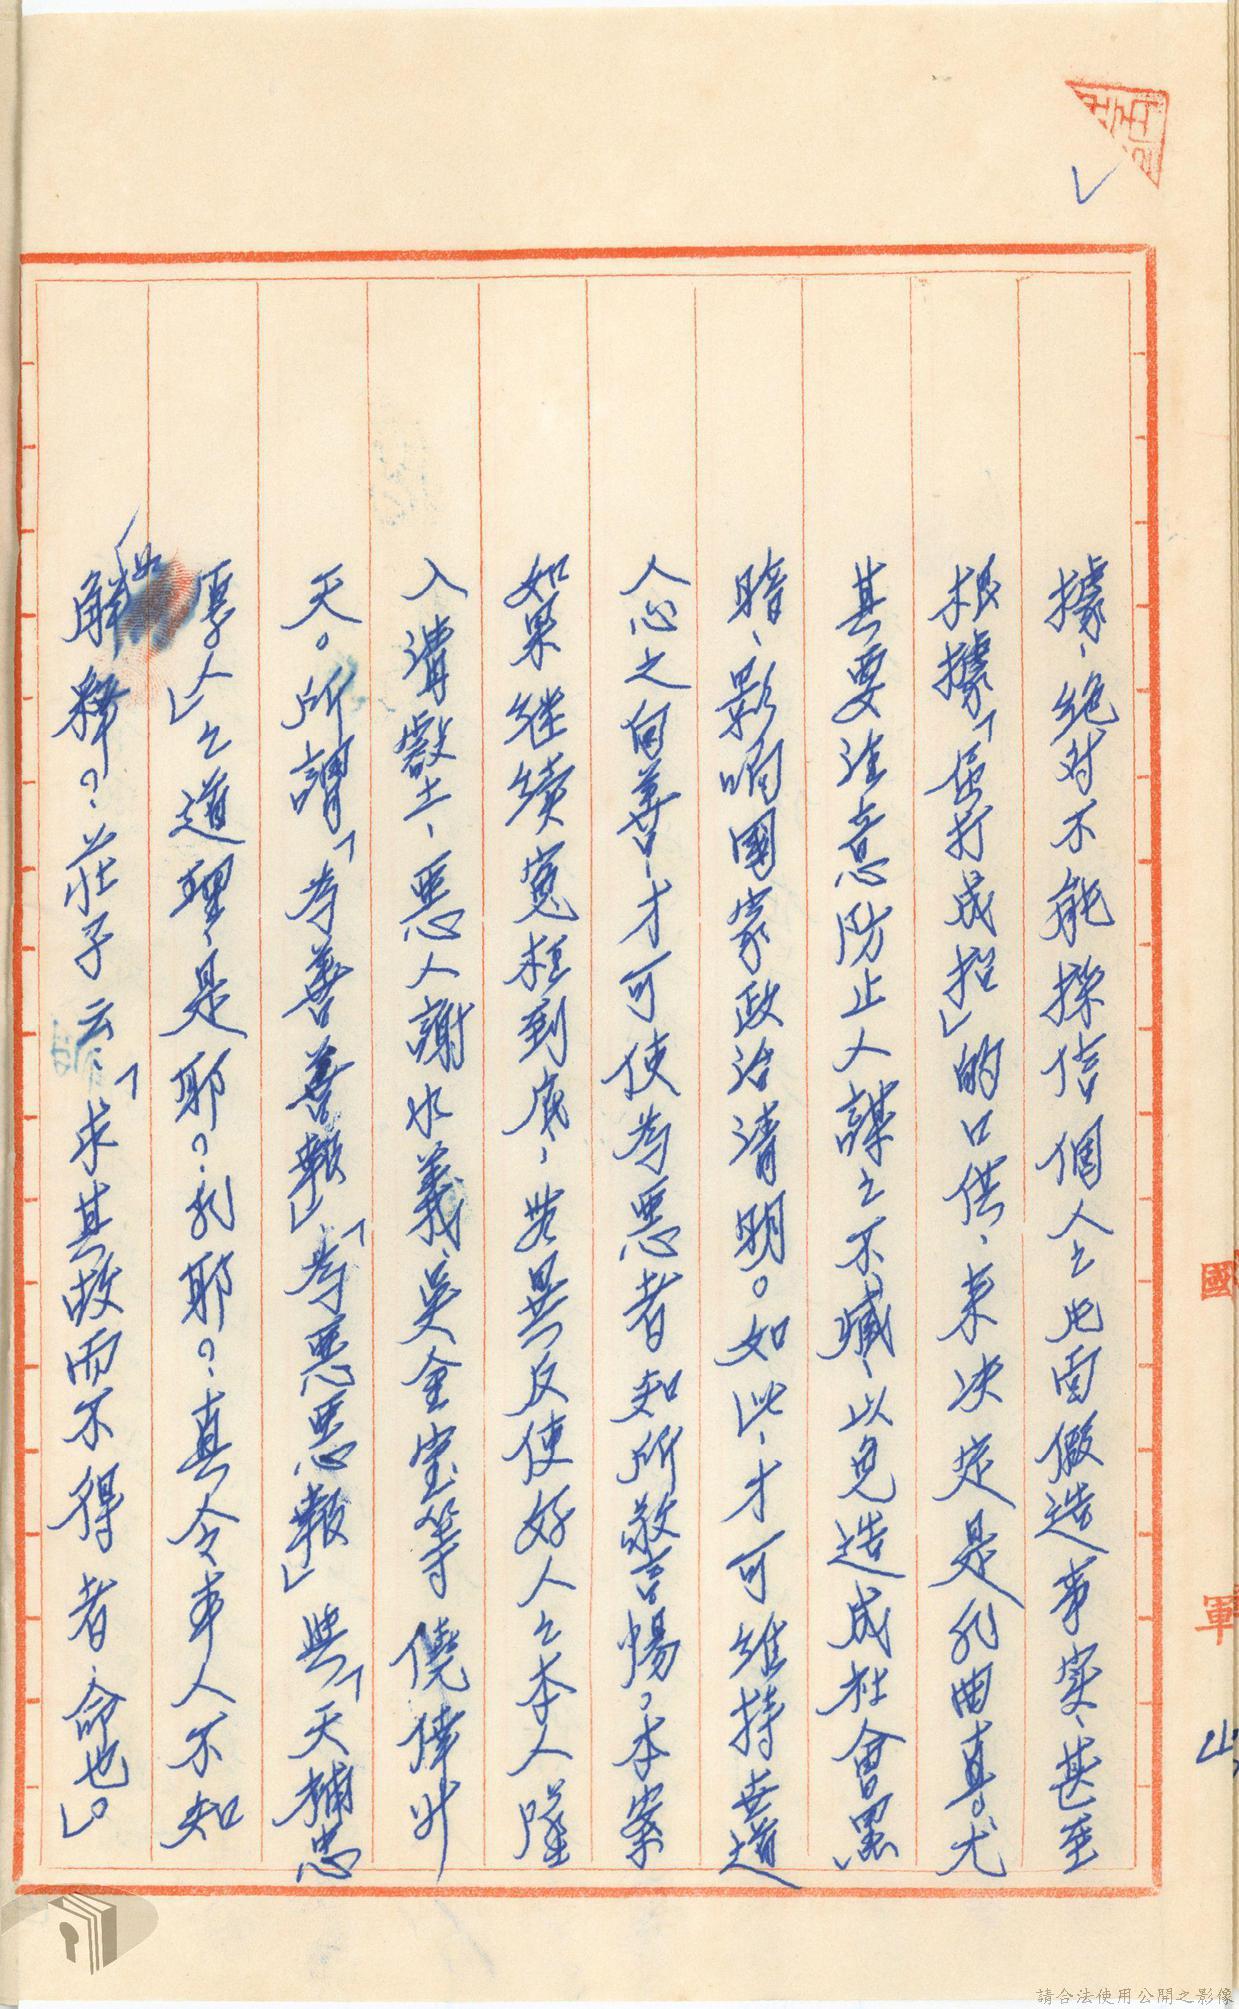 據、絕对不能採信個人之片面假造事实、甚至
根據「屈打成招」的口供、来決定是非曲直。尤
其要注意防止人謀之不臧、以免造成社會黑
暗、影响國家政治清明。如此、才可維持世道
人心之向善、才可使為惡者知所敬言惕。本案
如果继續寃枉到底、無異反使好人之本人墜
入溝壑、惡人謝水義、吳金宝等僥倖升
天。所謂「為善善報」「為惡惡報」與「天補忠
厚人」之道理、是耶？非耶？真令車人不知
如何
解釋？莊子云：「求其故而不得者、命也」。
國
軍
請合法使用公開之影像